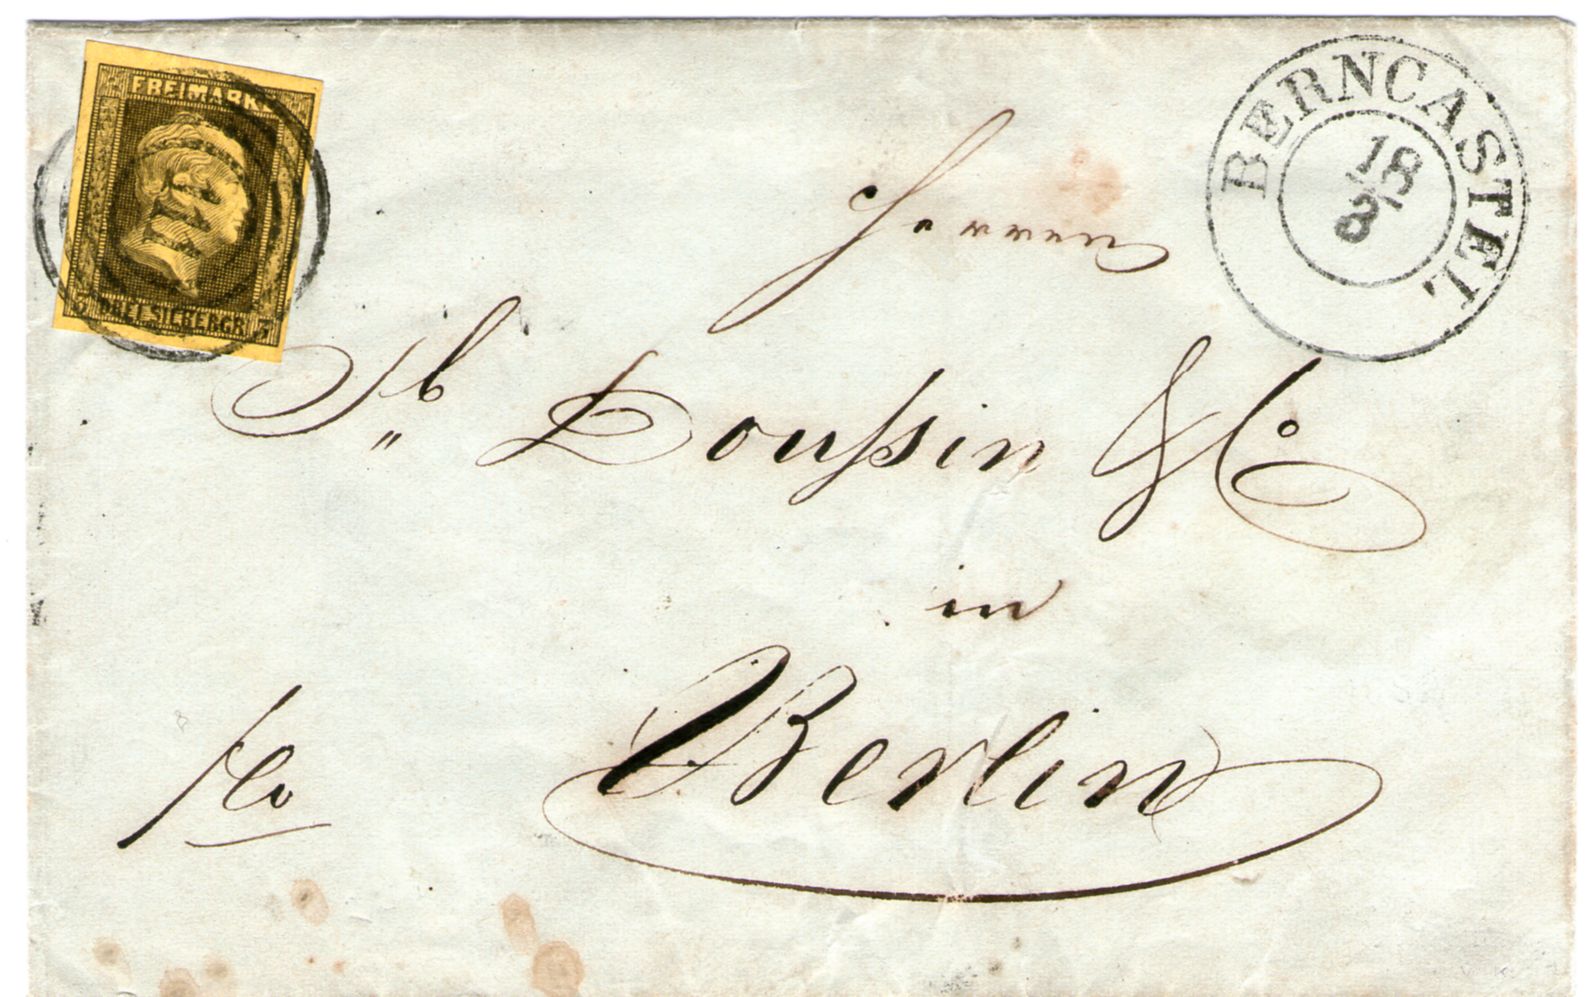 FREIMARKE
3 DREI SILBERGR. 3
BERNCASTEL
18/8
Herren
Doussin & Co
in
Berlin